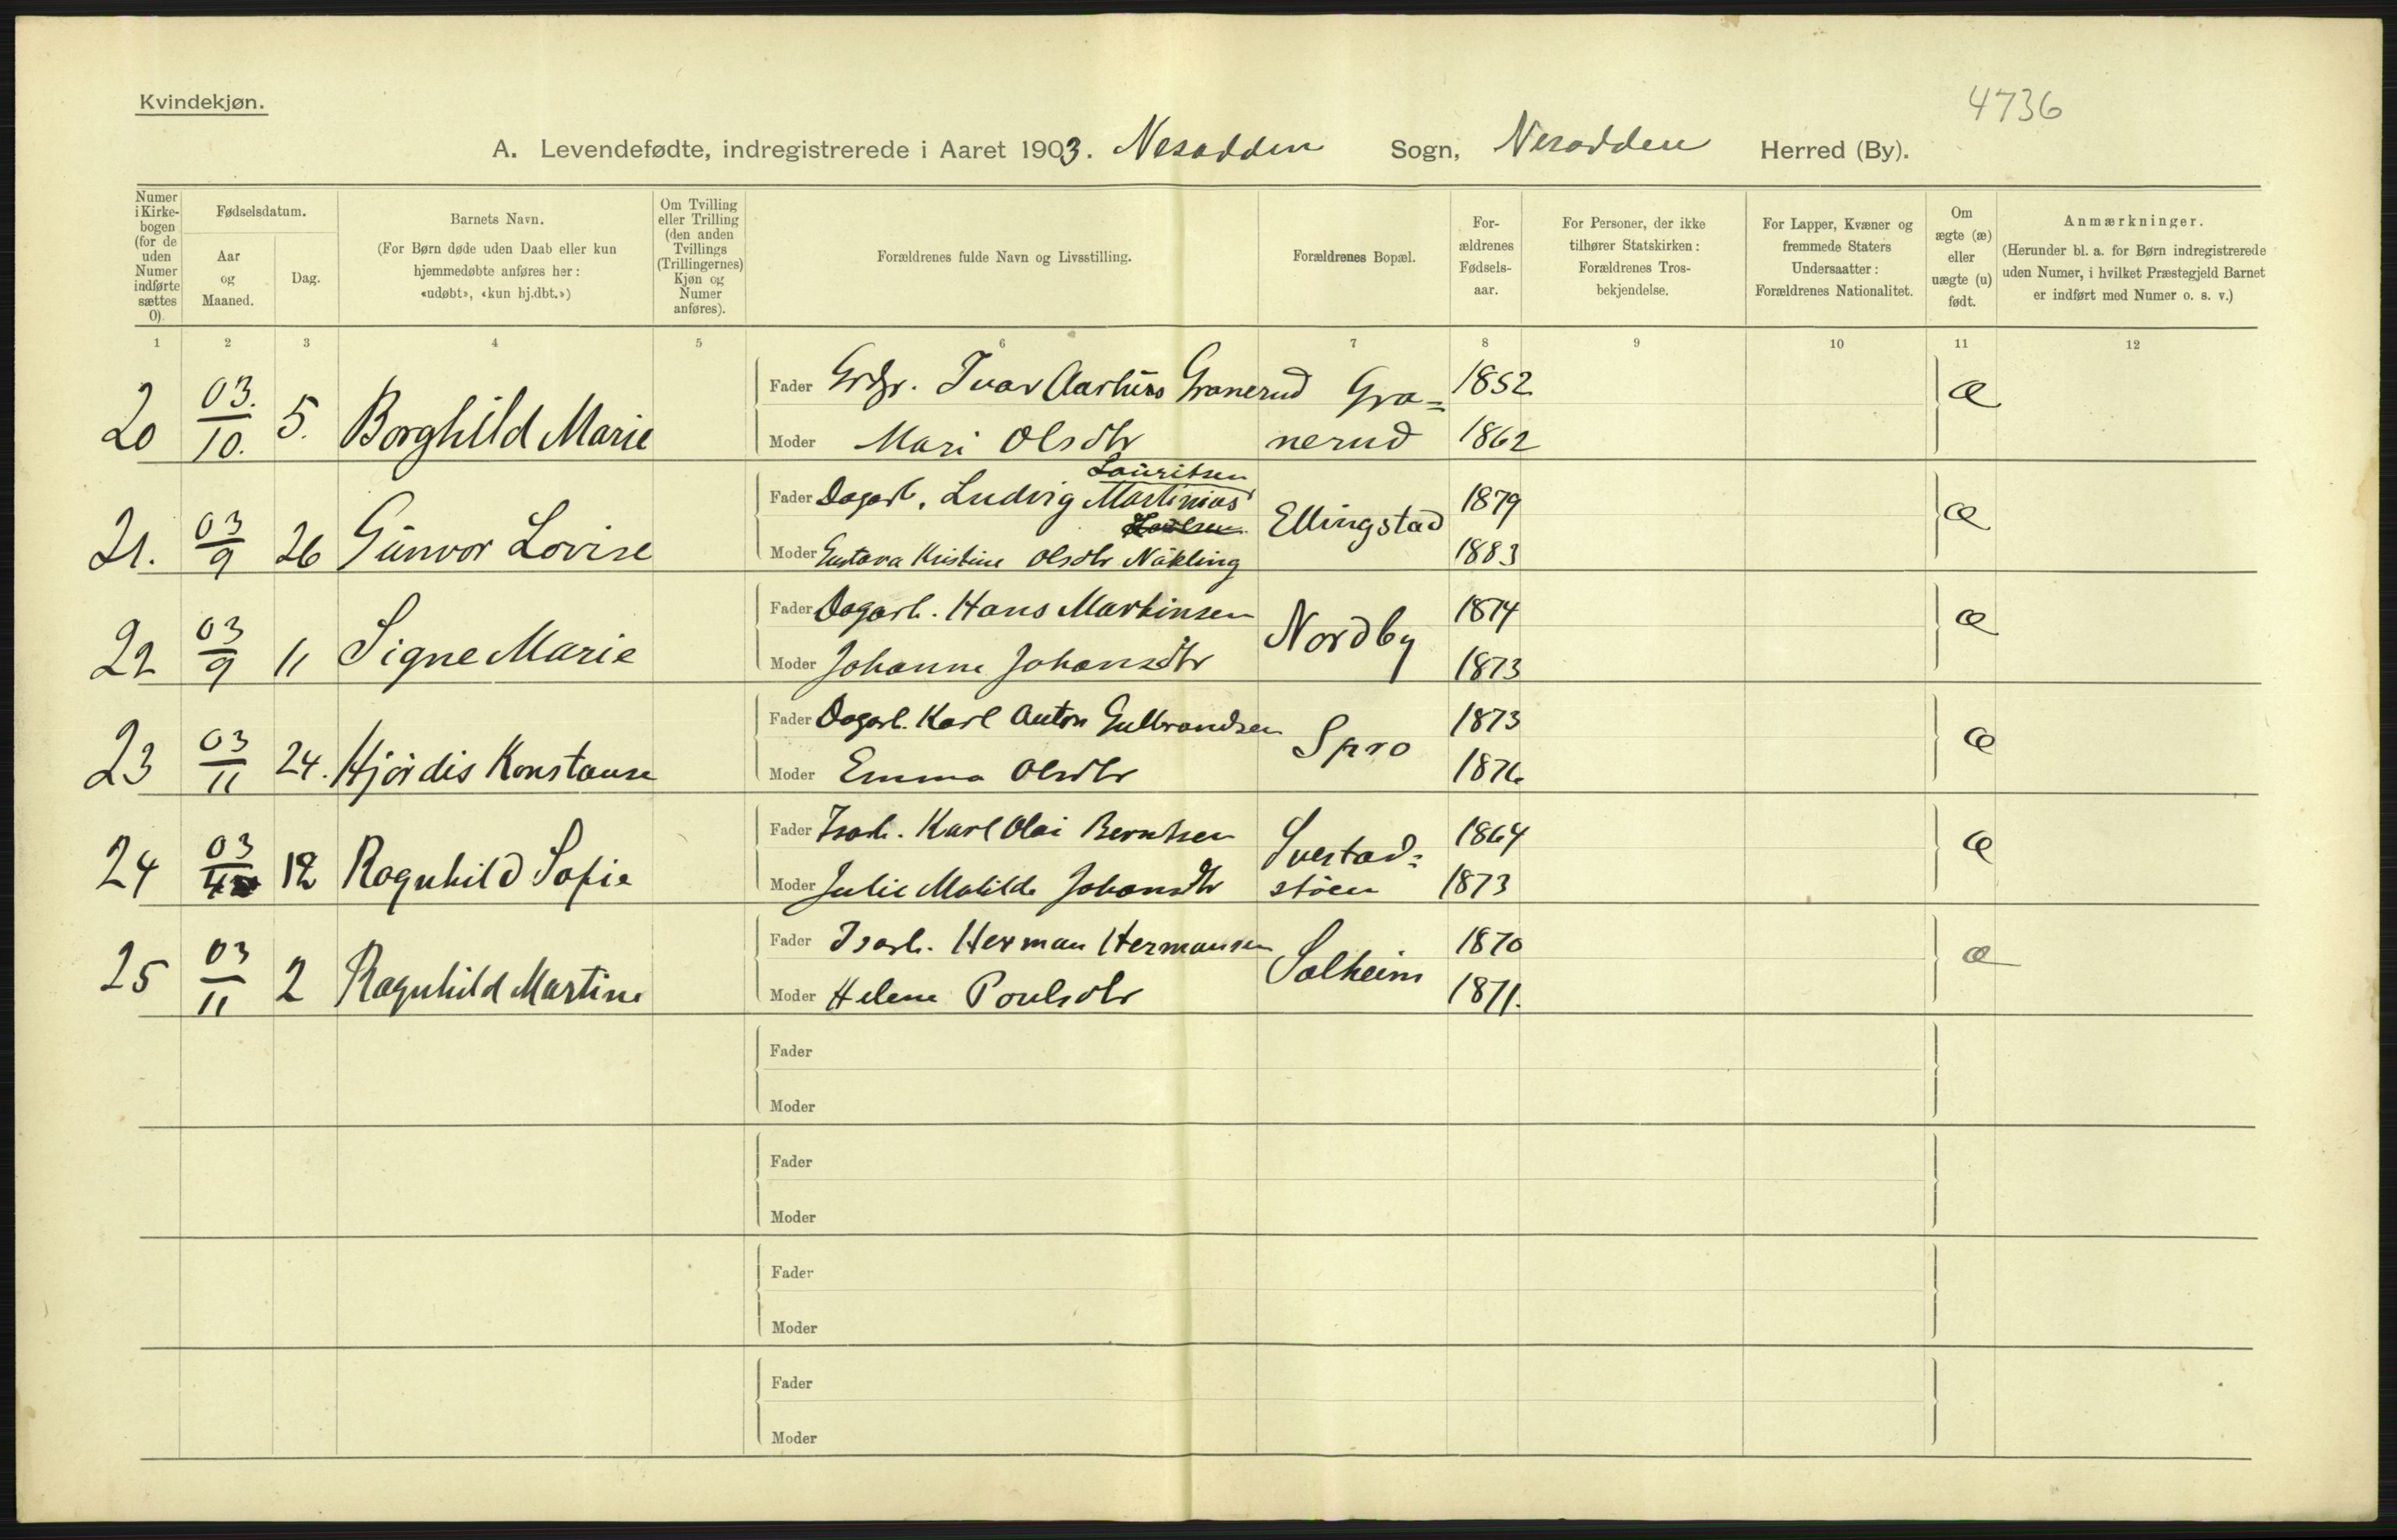 Kvindekjøn.
4736
A. Levendefødte, indregistrerede i Aaret 1903. Nesodden Sogn, Nesodden Herred (By).
Numer i Kirkebogen (for de uden Numer indførte sættes 0).
Fødselsdatum.
Aar og Maaned.
Dag.
Barnets Navn.
(For Børn døde uden Daab eller kun hjemmedøbte anføres her: «udøbt», «kun hj.dbt.»)
Om Tvilling eller Trilling (den anden Tvillings (Trillingernes) Kjøn og Numer anføres).
Forældrenes fulde Navn og Livsstilling.
Forældrenes Bopæl.
Forældrenes Fødselsaar.
For Personer, der ikke tilhører Statskirken: Forældrenes Trosbekjendelse.
For Lapper, Kvæner og fremmede Staters Undersaatter: Forældrenes Nationalitet.
Om ægte (æ) eller uægte (u) født.
Anmærkninger.
(Herunder bl. a. for Børn indregistrerede uden Numer, i hvilket Præstegjeld Barnet er indført med Numer o. s. v.)
1 2 3 4 5 6 7 8 9 10 11 12
20 03./10. 5. Borghild Marie
Fader Grbr. Ivar Aarhus Granerud Gra= 1852 æ
Moder Mari Olsdtr nerud 1862
Lauritsen
21. 03/9 26 Gunvor Lovise
Fader Dagarb. Ludvig Martinius Ellingstad 1879 æ
Moder Gustava Kristine Olsdtr Näkling 1883
22 03/9 11 Signe Marie
Fader Dagarb. Hans Martinsen Nordby 1874 æ
Moder Johanne Johansdtr 1873
23 03/11 24. Hjördis Konstanse
Fader Dagarb. Karl Anton Gulbrandsen Spro 1873 æ
Moder Emma Olsdtr 1876
24 03/ 12 Ragnhild Sofie
Fader Isarb. Karl Olai Berntsen Svestad= 1864 æ
Moder Julie Matilde Johansdtr støen 1873
25 03/11 2 Ragnhild Martine
Fader Isarb. Herman Hermansen Solheim 1870 æ
Moder Helene Poulsdtr 1871.
Fader
Moder
Fader
Moder
Fader
Moder
Fader
Moder